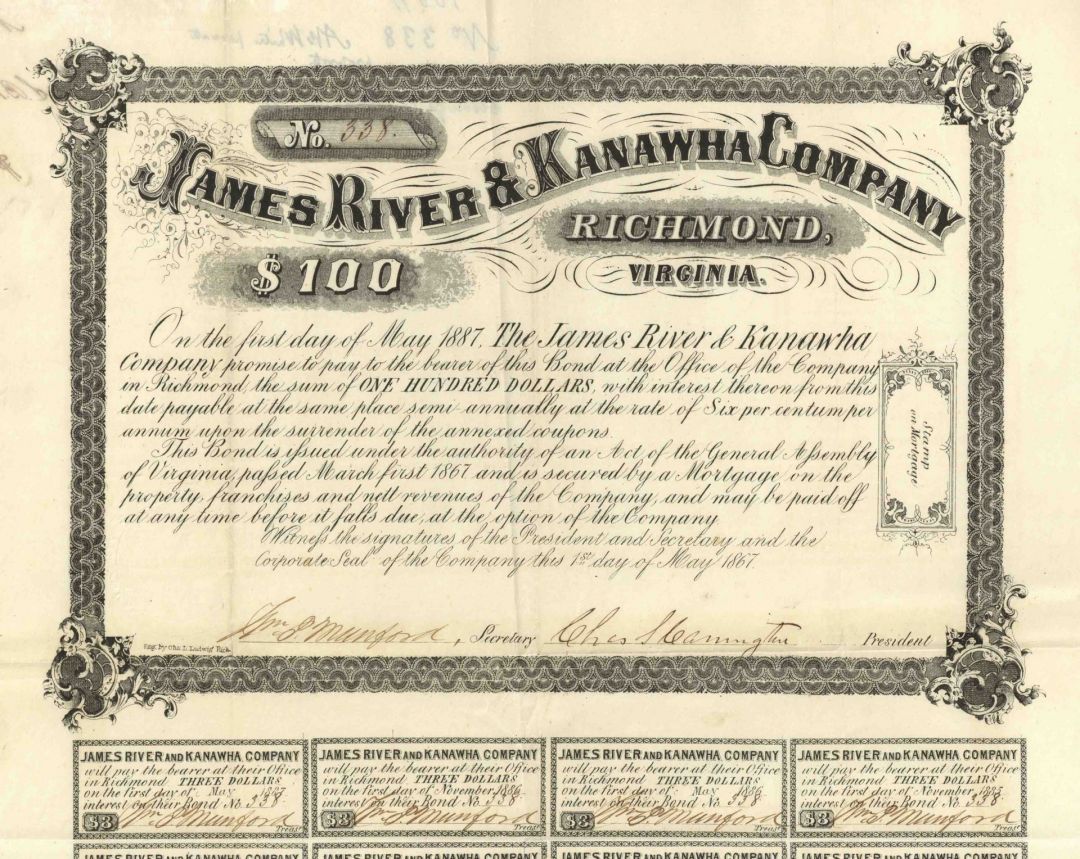 No. 338.
JAMES RIVER & KANAWHA COMPANY
RICHMOND,
VIRGINIA.
$100
On the first day of May 1887, The James River & Kanawha
Company promise to pay to the bearer of this Bond at the Office of the Company
in Richmond the sum of ONE HUNDRED DOLLARS, with interest thereon from this
date payable at the same place semi-annually at the rate of Six per centum per
annum upon the surrender of the annexed coupons.
This Bond is issued under the authority of an Act of the General Assembly
of Virginia, passed March first 1867 and is secured by a Mortgage on the
property, franchises and nett revenues of the Company, and may be paid off
at any time before it falls due, at the option of the Company
Witness the signatures of the President and Secretary and the
Corporate Seal of the Company this 1st day of May 1867.
Stamp
on Mortgage
Wm P. Munford, Secretary Chas S Carrington President
Eng. by Chs. L. Ludwig Rich.
JAMES RIVER AND KANAWHA COMPANY
will pay the bearer at their Office
in Richmond THREE DOLLARS
on the first day of May 1887
interest on their Bond No. 338
$3 Wm P Munford
Treasr.
JAMES RIVER AND KANAWHA COMPANY
will pay the bearer at their Office
in Richmond THREE DOLLARS
on the first day of November 1886
interest on their Bond No. 338
$3 Wm P Munford
Treasr.
JAMES RIVER AND KANAWHA COMPANY
will pay the bearer at their Office
in Richmond THREE DOLLARS
on the first day of May 1886
interest on their Bond No. 338
$3 Wm P Munford
Treasr.
JAMES RIVER AND KANAWHA COMPANY
will pay the bearer at their Office
in Richmond THREE DOLLARS
on the first day of November 1885
interest on their Bond No. 338
$3 Wm P Munford
Treasr.
JAMES RIVER AND KANAWHA COMPANY
JAMES RIVER AND KANAWHA COMPANY
JAMES RIVER AND KANAWHA COMPANY
JAMES RIVER AND KANAWHA COMPANY